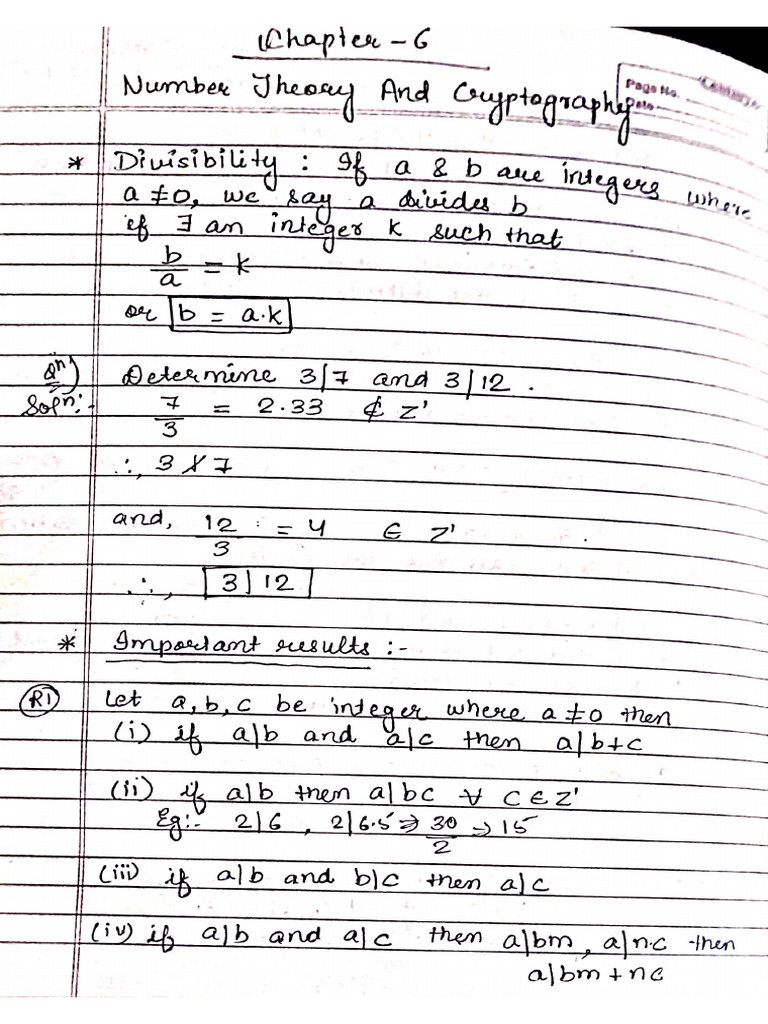 Chapter - 6
Number Theory And Cryptography
Page No.
Date
* Divisibility : If a & b are integers where
a ≠ 0, we say a divides b
if ∃ an integer k such that
b/a = k
or b = a·k
Qn) Determine 3|7 and 3|12 .
Soln:- 7/3 = 2.33 ∉ Z'
∴, 3 ∤ 7
and, 12/3 = 4 ∈ Z'
∴, 3|12
* Important results :-
R1 Let a, b, c be integer where a ≠ 0 then
(i) if a|b and a|c then a|b+c
(ii) if a|b then a|bc ∀ c ∈ Z'
Eg:- 2|6 , 2|6·5 ⇒ 30/2 ⇒ 15
(iii) if a|b and b|c then a|c
(iv) if a|b and a|c then a|bm, a|n·c then
a|bm + nc